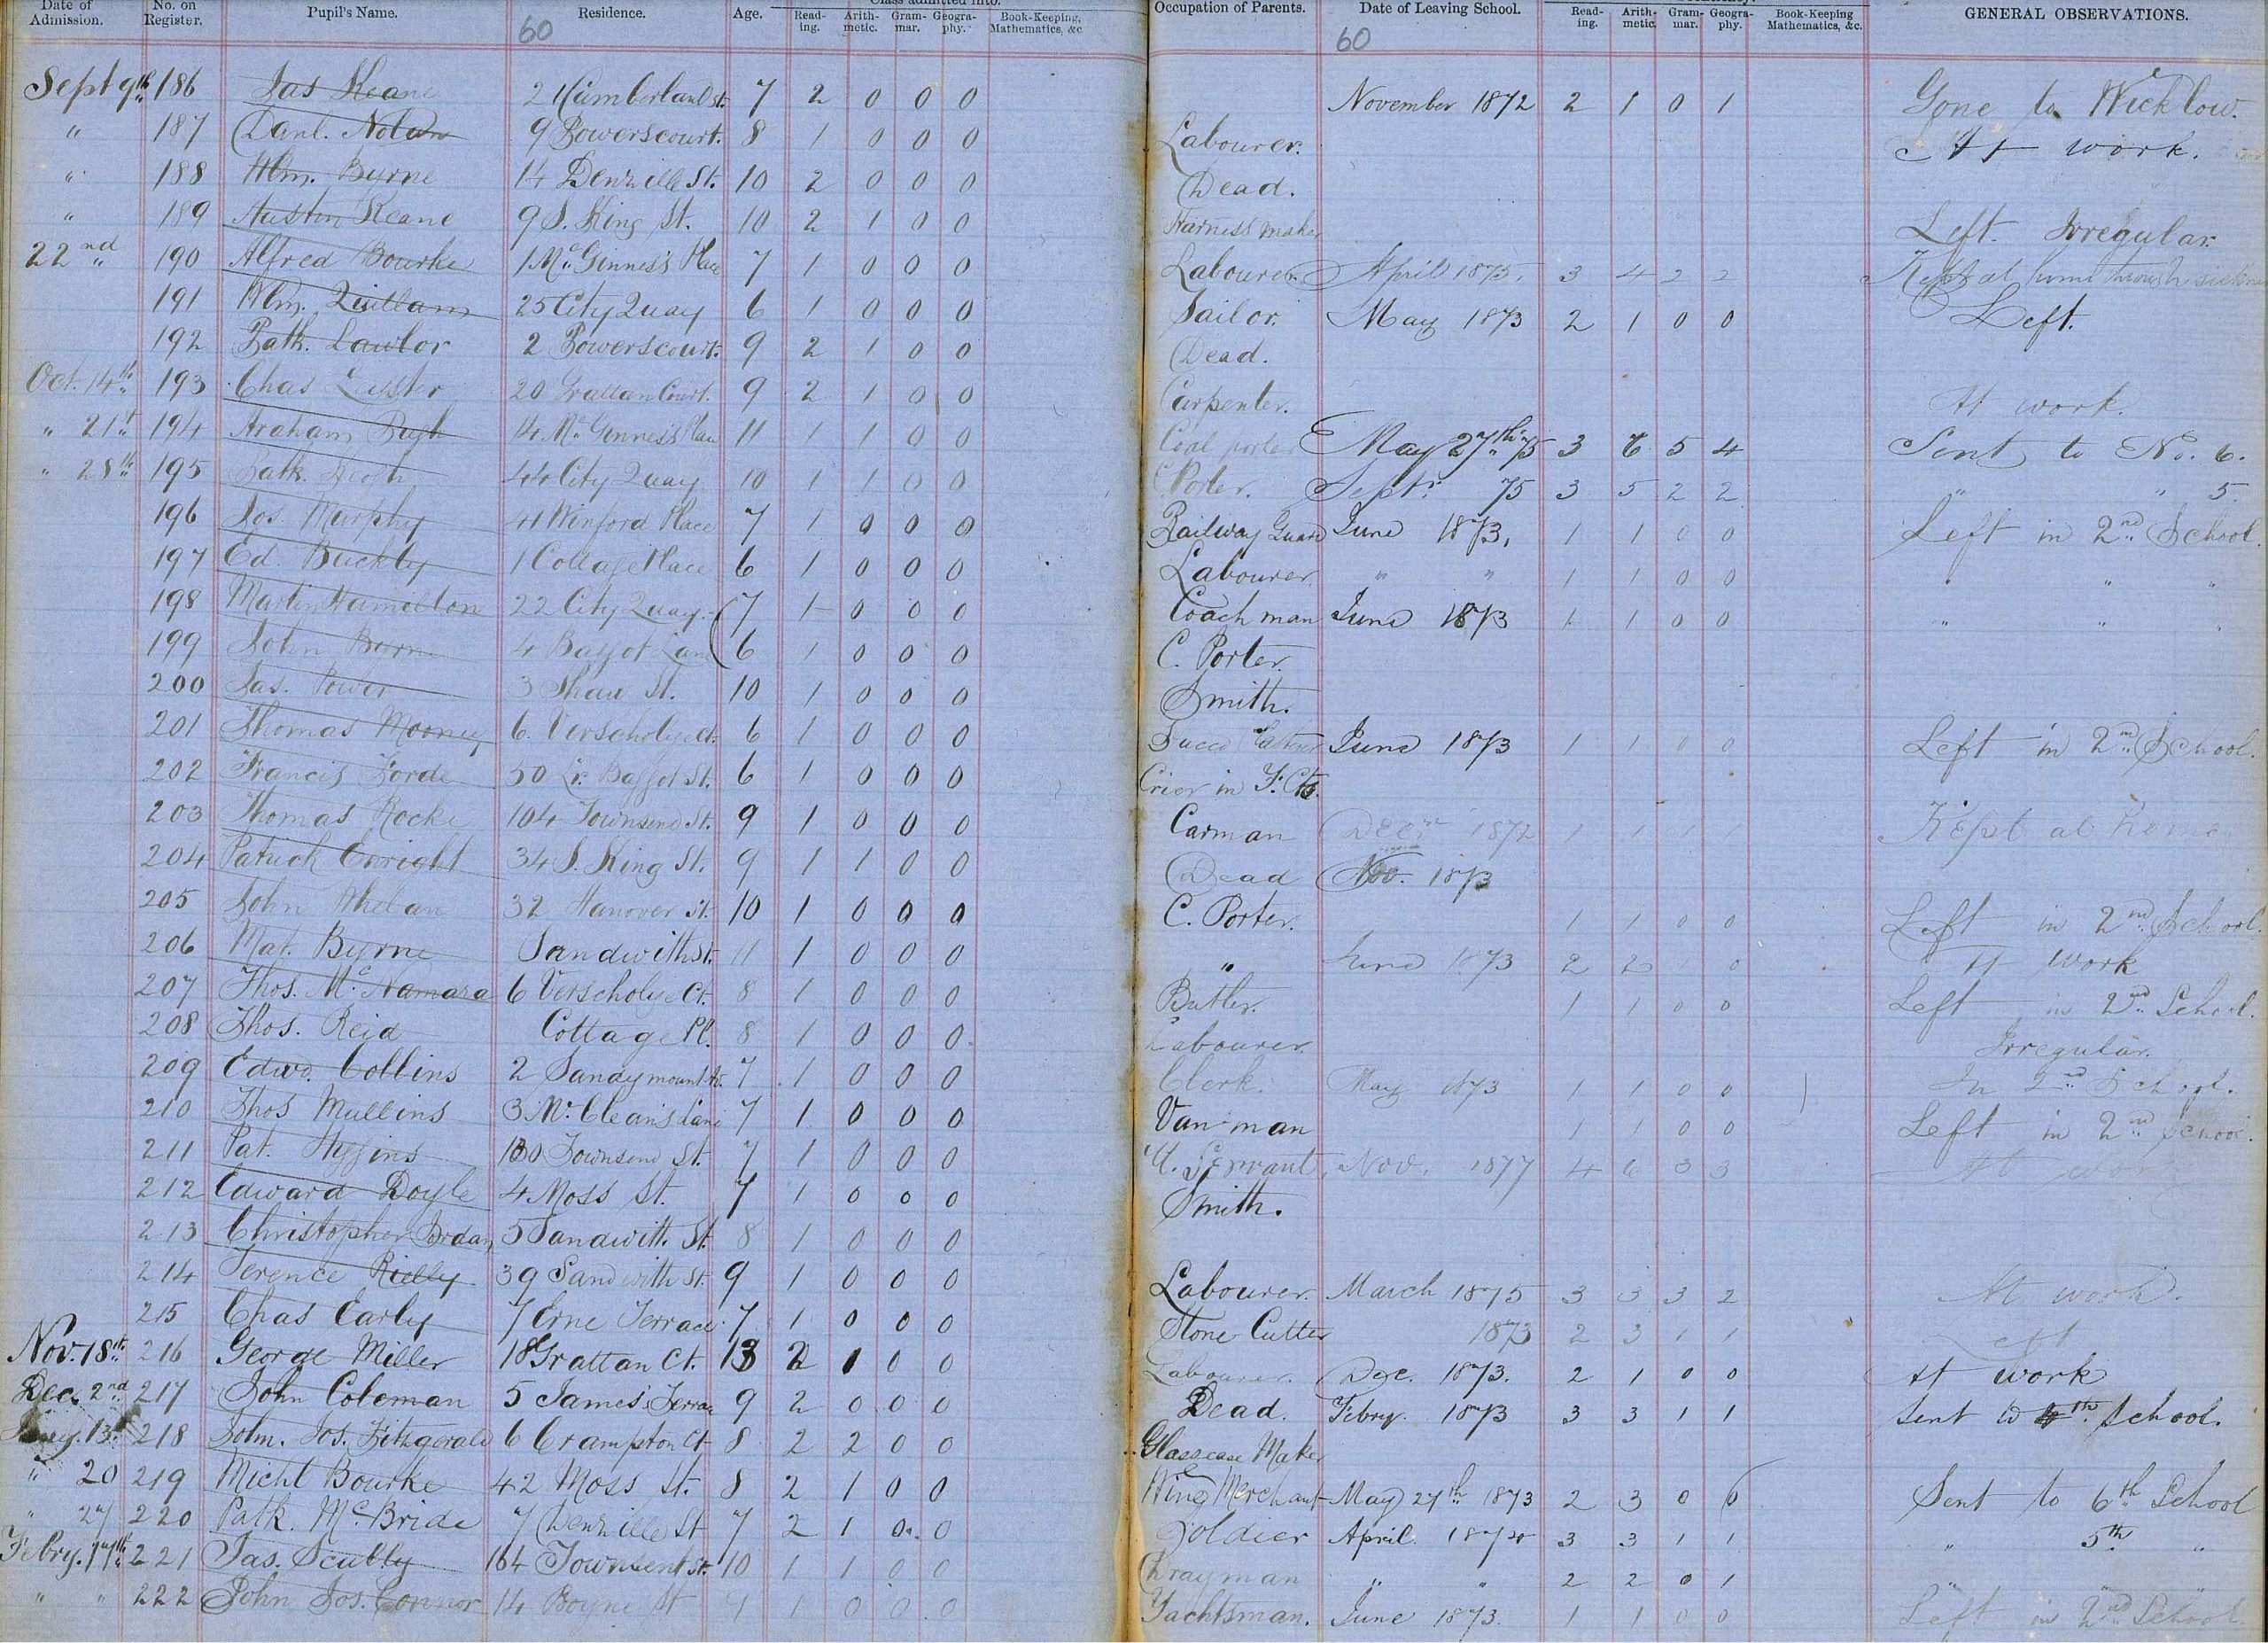 Date of Admission. No. on Register. Pupil's Name. Residence. Age. Class admitted into. Read-ing. Arith-metic. Gram-mar. Geogra-phy. Book-Keeping, Mathematics, &c Occupation of Parents. Date of Leaving School. Read-ing. Arith-metic. Gram-mar. Geogra-phy. Book-Keeping Mathematics, &c. GENERAL OBSERVATIONS.
60 60
Sept 9th 186 Jas Keane 2 Cumberland St. 7 2 0 0 0 November 1872 2 1 0 1 Gone to Wicklow.
" 187 Danl. Nolan 9 Powerscourt. 8 1 0 0 0 Labourer. At work.
" 188 Wm. Byrne 14 Denzille St. 10 2 0 0 0 Dead.
" 189 Austin Keane 9 S. King St. 10 2 1 0 0 Harness maker Left. Irregular.
22nd " 190 Alfred Bourke 1 Mc. Ginness's Place 7 1 0 0 0 Labourer. April 1875. 3 4 2 2 Kept at home through
191 Wm. Quillam 25 City Quay 6 1 0 0 0 Sailor. May 1873 2 1 0 0 Left.
192 Patk. Lawlor 2 Powerscourt. 9 2 1 0 0 Dead.
Oct. 14th 193 Chas Luster 20 Grattan Court. 9 2 1 0 0 Carpenter. At work.
" 21st 194 Araham Pugh 14 Mc. Ginness's Place 11 1 1 0 0 Coal porter May 27th 75 3 6 5 4 Sent to No. 6.
" 28th 195 Patk. Keogh 44 City Quay 10 1 1 0 0 Porter. Septr. 75 3 5 2 2 " " 5.
196 Jos. Murphy 41 Winford Place 7 1 0 0 0 Railway Guard June 1873. 1 1 0 0 Left in 2nd School.
197 Ed. Buckly 1 Cottage Place 6 1 0 0 0 Labourer " " 1 1 0 0 " " "
198 Martin Hamelton 22 City Quay. 7 1 0 0 0 Coach man June 1873 1 1 0 0 " " "
199 John Byrne 4 Baggot Lane 6 1 0 0 0 C. Porter.
200 Jas. Power 3 Shaw St. 10 1 0 0 0 Smith.
201 Thomas Mooney 6. Verscholye ct. 6 1 0 0 0 June 1873 1 1 0 0 Left in 2nd School.
202 Francis Forde 50 Lr. Baggot St. 6 1 0 0 0 Crier in F. Cts.
203 Thomas Rocke 104 Townsend St. 9 1 0 0 0 Carman Decr. 1872 1 1 Kept at home
204 Patrick Enright 34 S. King St. 9 1 1 0 0 Dead Nov. 1873
205 John Whelan 32 Hanover St. 10 1 0 0 0 C. Porter. 1 1 0 0 Left in 2nd School.
206 Mat. Byrne Sandwith St. 11 1 0 0 0 " June 1873 2 2 0 At work
207 Thos. Mc. Namara 6 Verscholye Ct. 8 1 0 0 0 Butler. 1 1 0 0 Left in 2nd School.
208 Thos. Reid Cottage Pl. 8 1 0 0 0 Labourer. Irregular.
209 Edwd. Collins 2 Sandymount Av. 7 1 0 0 0 Clerk. May 1873 1 1 0 0 In 2nd School.
210 Thos Mullins 3 Mc. Clean's Lane 7 1 0 0 0 Van man 1 1 0 0 Left in 2nd School.
211 Pat. Higgins 130 Townsend St. 7 1 0 0 0 H. Servant. Nov. 1877 4 6 3 3 At work
212 Edward Doyle 4 Moss St. 7 1 0 0 0 Smith.
213 Christopher Jordan 5 Sandwith St. 8 1 0 0 0
214 Terence Rielly 39 Sandwith St. 9 1 0 0 0 Labourer. March 1875 3 3 3 2 At work.
215 Chas Early 7 Erne Terrace 7 1 0 0 0 Stone Cutter 1873 2 3 1 1 Left
Nov. 18th 216 George Miller 18 Grattan Ct. 13 2 1 0 0 Labourer. Dec. 1873. 2 1 0 0 At work
Dec. 2nd 217 John Coleman 5 James' Terrace 9 2 0 0 0 Dead. Febry. 1873 3 3 1 1 Sent to 4th School.
Jany. 13th 218 John. Jos. Fitzgerald 6 Crampton Ct 8 2 2 0 0 Glasscase Maker
" 20 219 Michl Bourke 42 Moss St. 8 2 1 0 0 Wine Merchant May 27th 1873 2 3 0 0 Sent to 6th School
" 27 220 Patk. Mc. Bride 7 Denzille St 7 2 1 0 0 Soldier April. 1874 3 3 1 1 " 5th "
Febry. 17th 221 Jas. Scully 164 Townsent St. 10 1 1 0 0 Drayman " " 2 2 0 1 " " "
" " 222 John Jos. Connor 14 Boyne St 7 1 0 0 0 Yachtsman. June 1873. 1 1 0 0 Left in 2nd School.